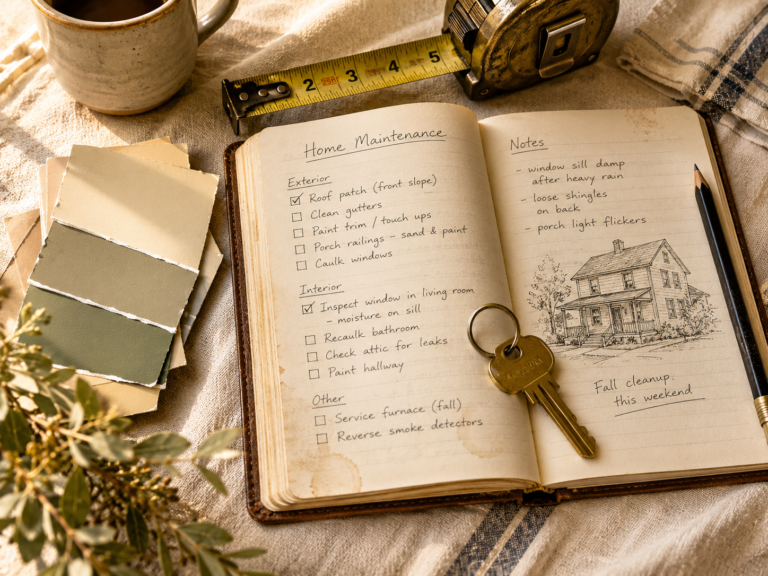 2 3 4 5
Home Maintenance
Exterior
☑ Roof patch (front slope)
☐ Clean gutters
☐ Paint trim / touch ups
☐ Porch railings – sand & paint
☐ Caulk windows
Interior
☑ Inspect window in living room
– moisture on sill
☐ Recaulk bathroom
☐ Check attic for leaks
☐ Paint hallway
Other
☐ Service furnace (fall)
☐ Reverse smoke detectors
Notes
- window sill damp
after heavy rain
- loose shingles
on back
- porch light flickers
Fall cleanup.
this weekend